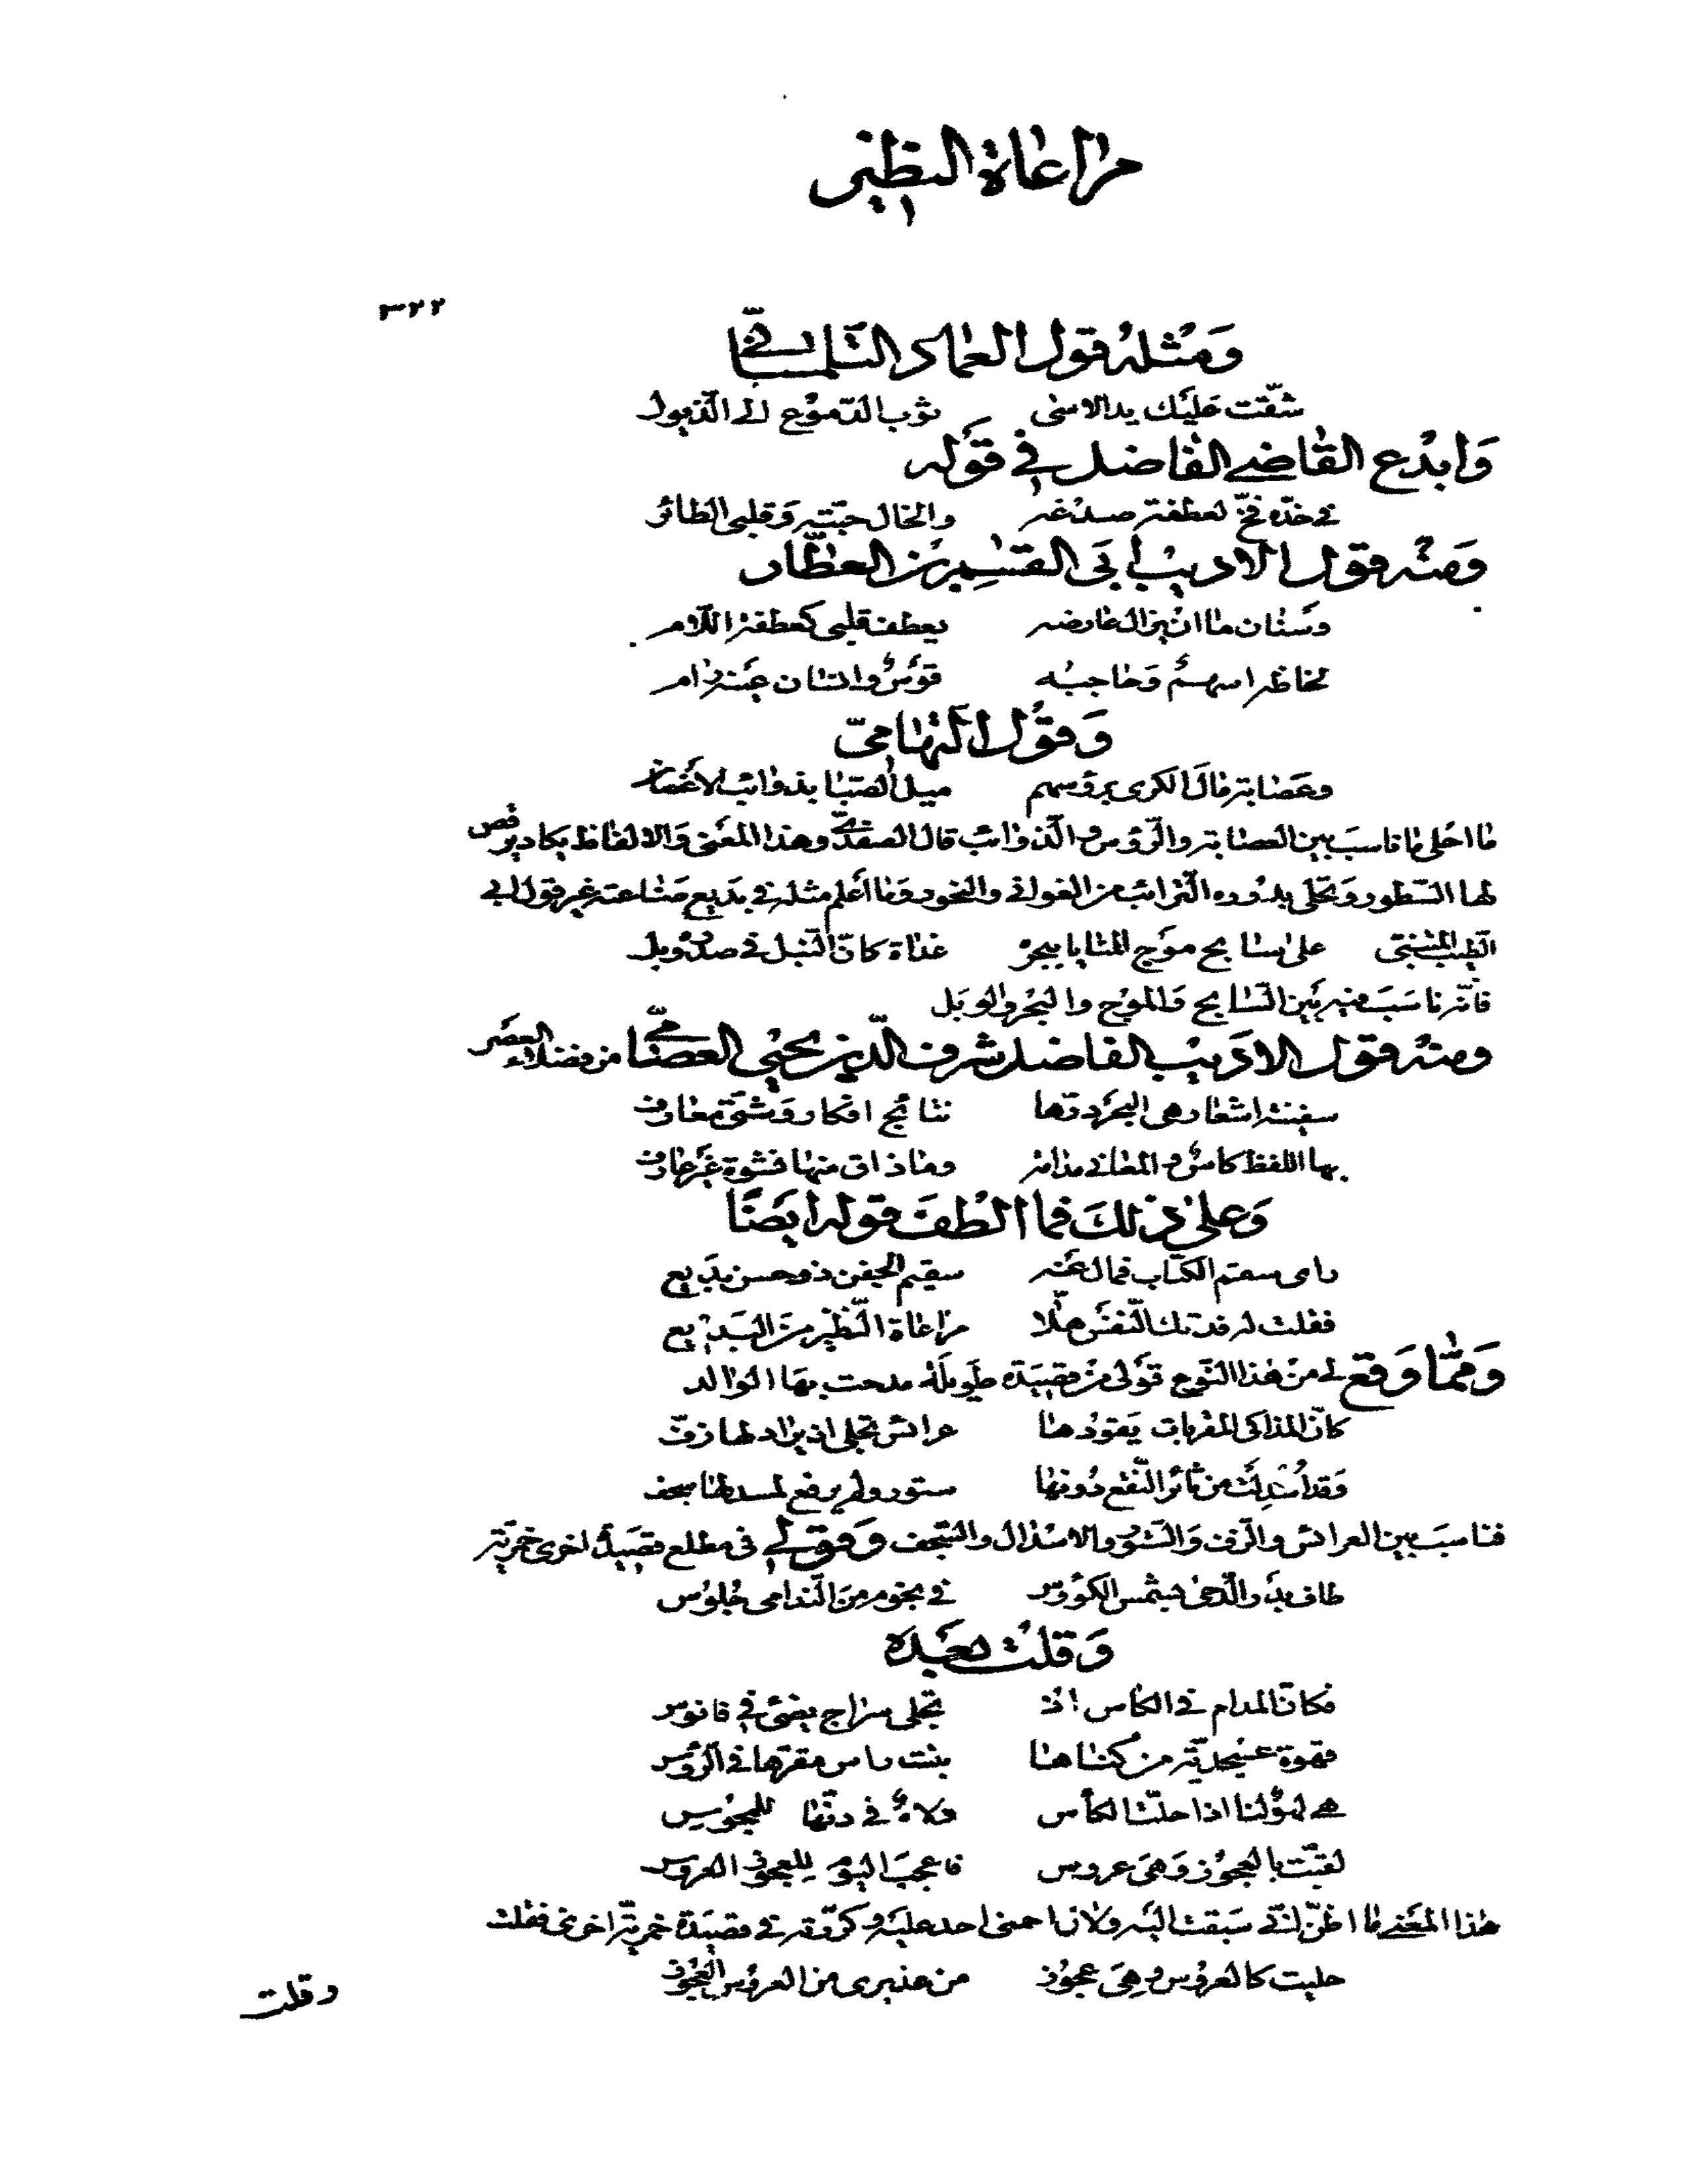 مراعاة النظير
٣٢٢
ومثله قول العماد السلماسي
شقّت عليك يد الاسى ثوب الدموع الى الذيول
وابدع القاضي الفاضل في قوله
في خدّه فخّ لعطفة صدغه والخال حبّته وقلبي الطائر
ومنه قول الاديب ابي القسم بن العطّار
وسنان ما ان يزال عارضه يعطف قلبي كعطفة اللام
لحاظه اسهم وحاجبه قوس وانسان عينه رام
وقول التهامي
وعصابة مال الكرى برؤسهم ميل الصبا بذوائب الاغصان
ما احلى ما ناسب بين العصابة والرؤس والذوائب قال الصفدي وهذا المعنى والالفاظ يكاد يرقص
لها السطور وتحلى بدوره الترائب من الغواني والنحور وما اعلم مثله في بديع صناعته غير قول ابي
الطيب المتنبي على سابح موج المنايا ببحره غداة كانّ النبل في صدره وبل
فانّه ناسب فيه بين السابح والموج والبحر والوبل
ومنه قول الاديب الفاضل شرف الدين يحيى العصامي من فضلاء العصر
سفينة اشعار هي البحر درّها نتائج افكار وشتى معارف
بها اللفظ كاس والمعاني مدامة وما ذاق منها نشوة غير عارف
وعلى ذلك فما الطف قوله ايضًا
راى سقم الكتاب فمال عنه سقيم الجفن ذو حسن بديع
فقلت له فدتك النفس هلّا مراعاة النظير من البديع
وممّا وقع لي من هذا النوع قولي من قصيدة طويلة مدحت بها الوالد
كانّ المذاكي المقربات يقودها عرائس تجلى اذ يراد لها زفّ
وقد اسدلت من ثائر النقع دونها ستور ولم يرفع لمسدلها سجف
فناسب بين العرائس والزف والستور والاسدال والسجف وقولي في مطلع قصيدة اخرى خمريّة
طاف بدر الدجى بشمس الكؤوس في نجوم من الندامى جلوس
وقلت بعده
فكانّ المدام في الكاس اذ تجلى سراج يضئ في فانوس
قهوة عسجديّة من كساها بنت راس مقرّها في الرؤس
هي لهو لنا اذا حلّت الكأس ولاه في دنّها للمجوس
لقبّت بالعجوز وهي عروس فاعجب اليوم للعجوز العروس
هذا المعنى ما اظنّ انني سبقت اليه ولا زاحمني احد عليه وكرّرته في قصيدة خمريّة اخرى فقلت
جليت كالعروس وهي عجوز من عذيري من العروس العجوز
وقلت